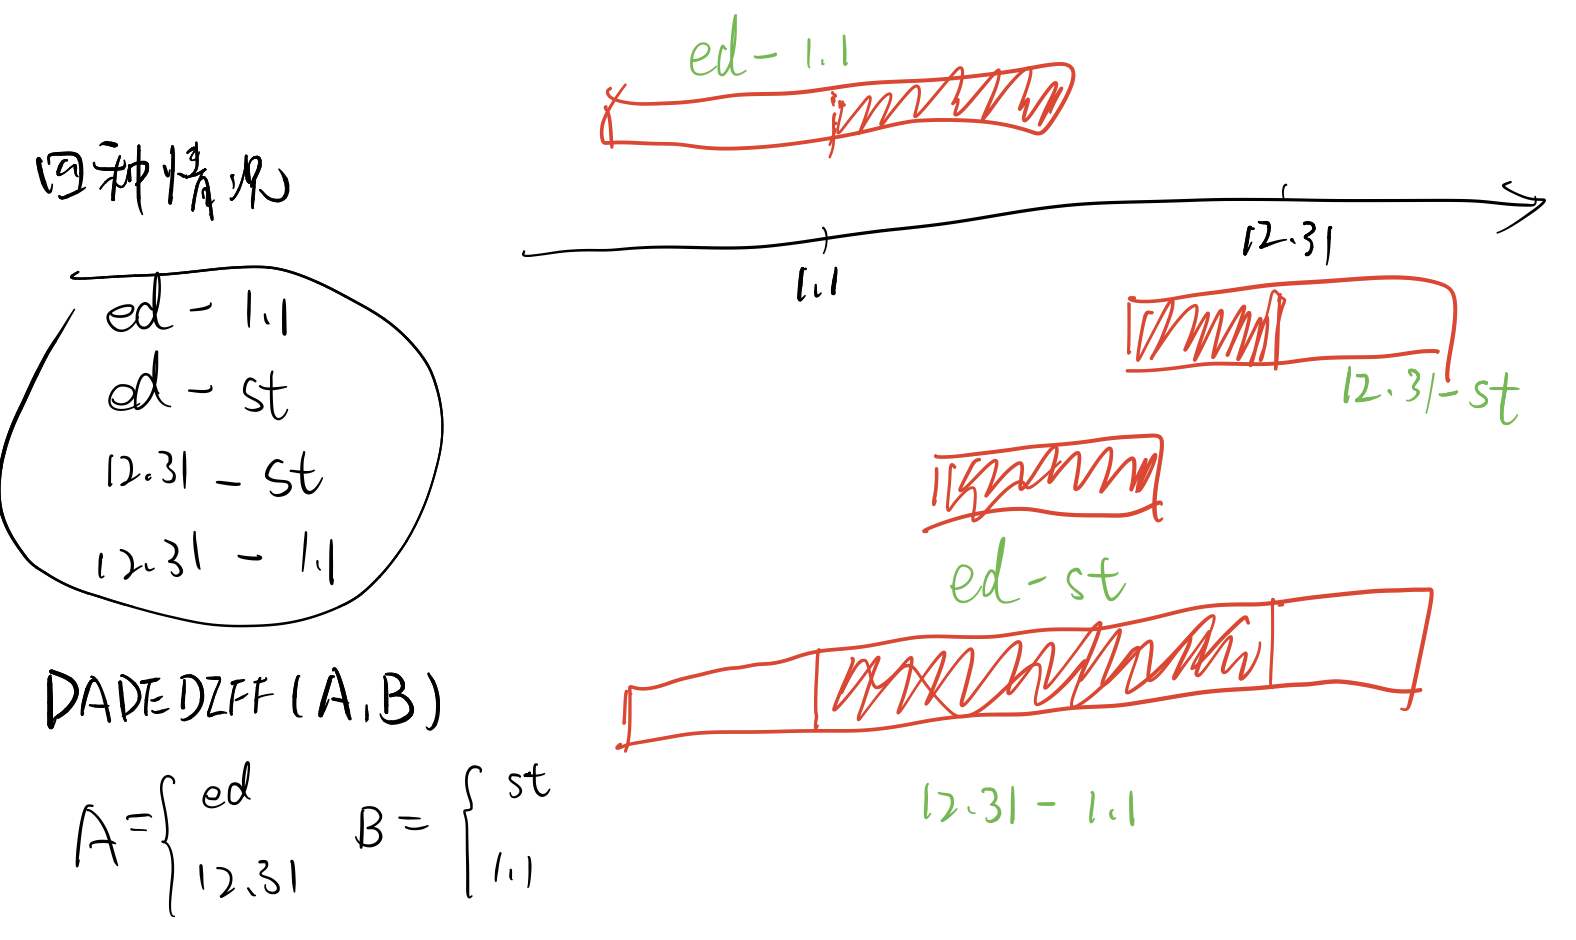 四种情况
ed - 1.1
ed - st
12.31 - st
12.31 - 1.1
DADEDIFF(A,B)
A = { ed
12.31
B = { st
1.1
ed - 1.1
1.1
12.31
12.31 - st
ed - st
12.31 - 1.1